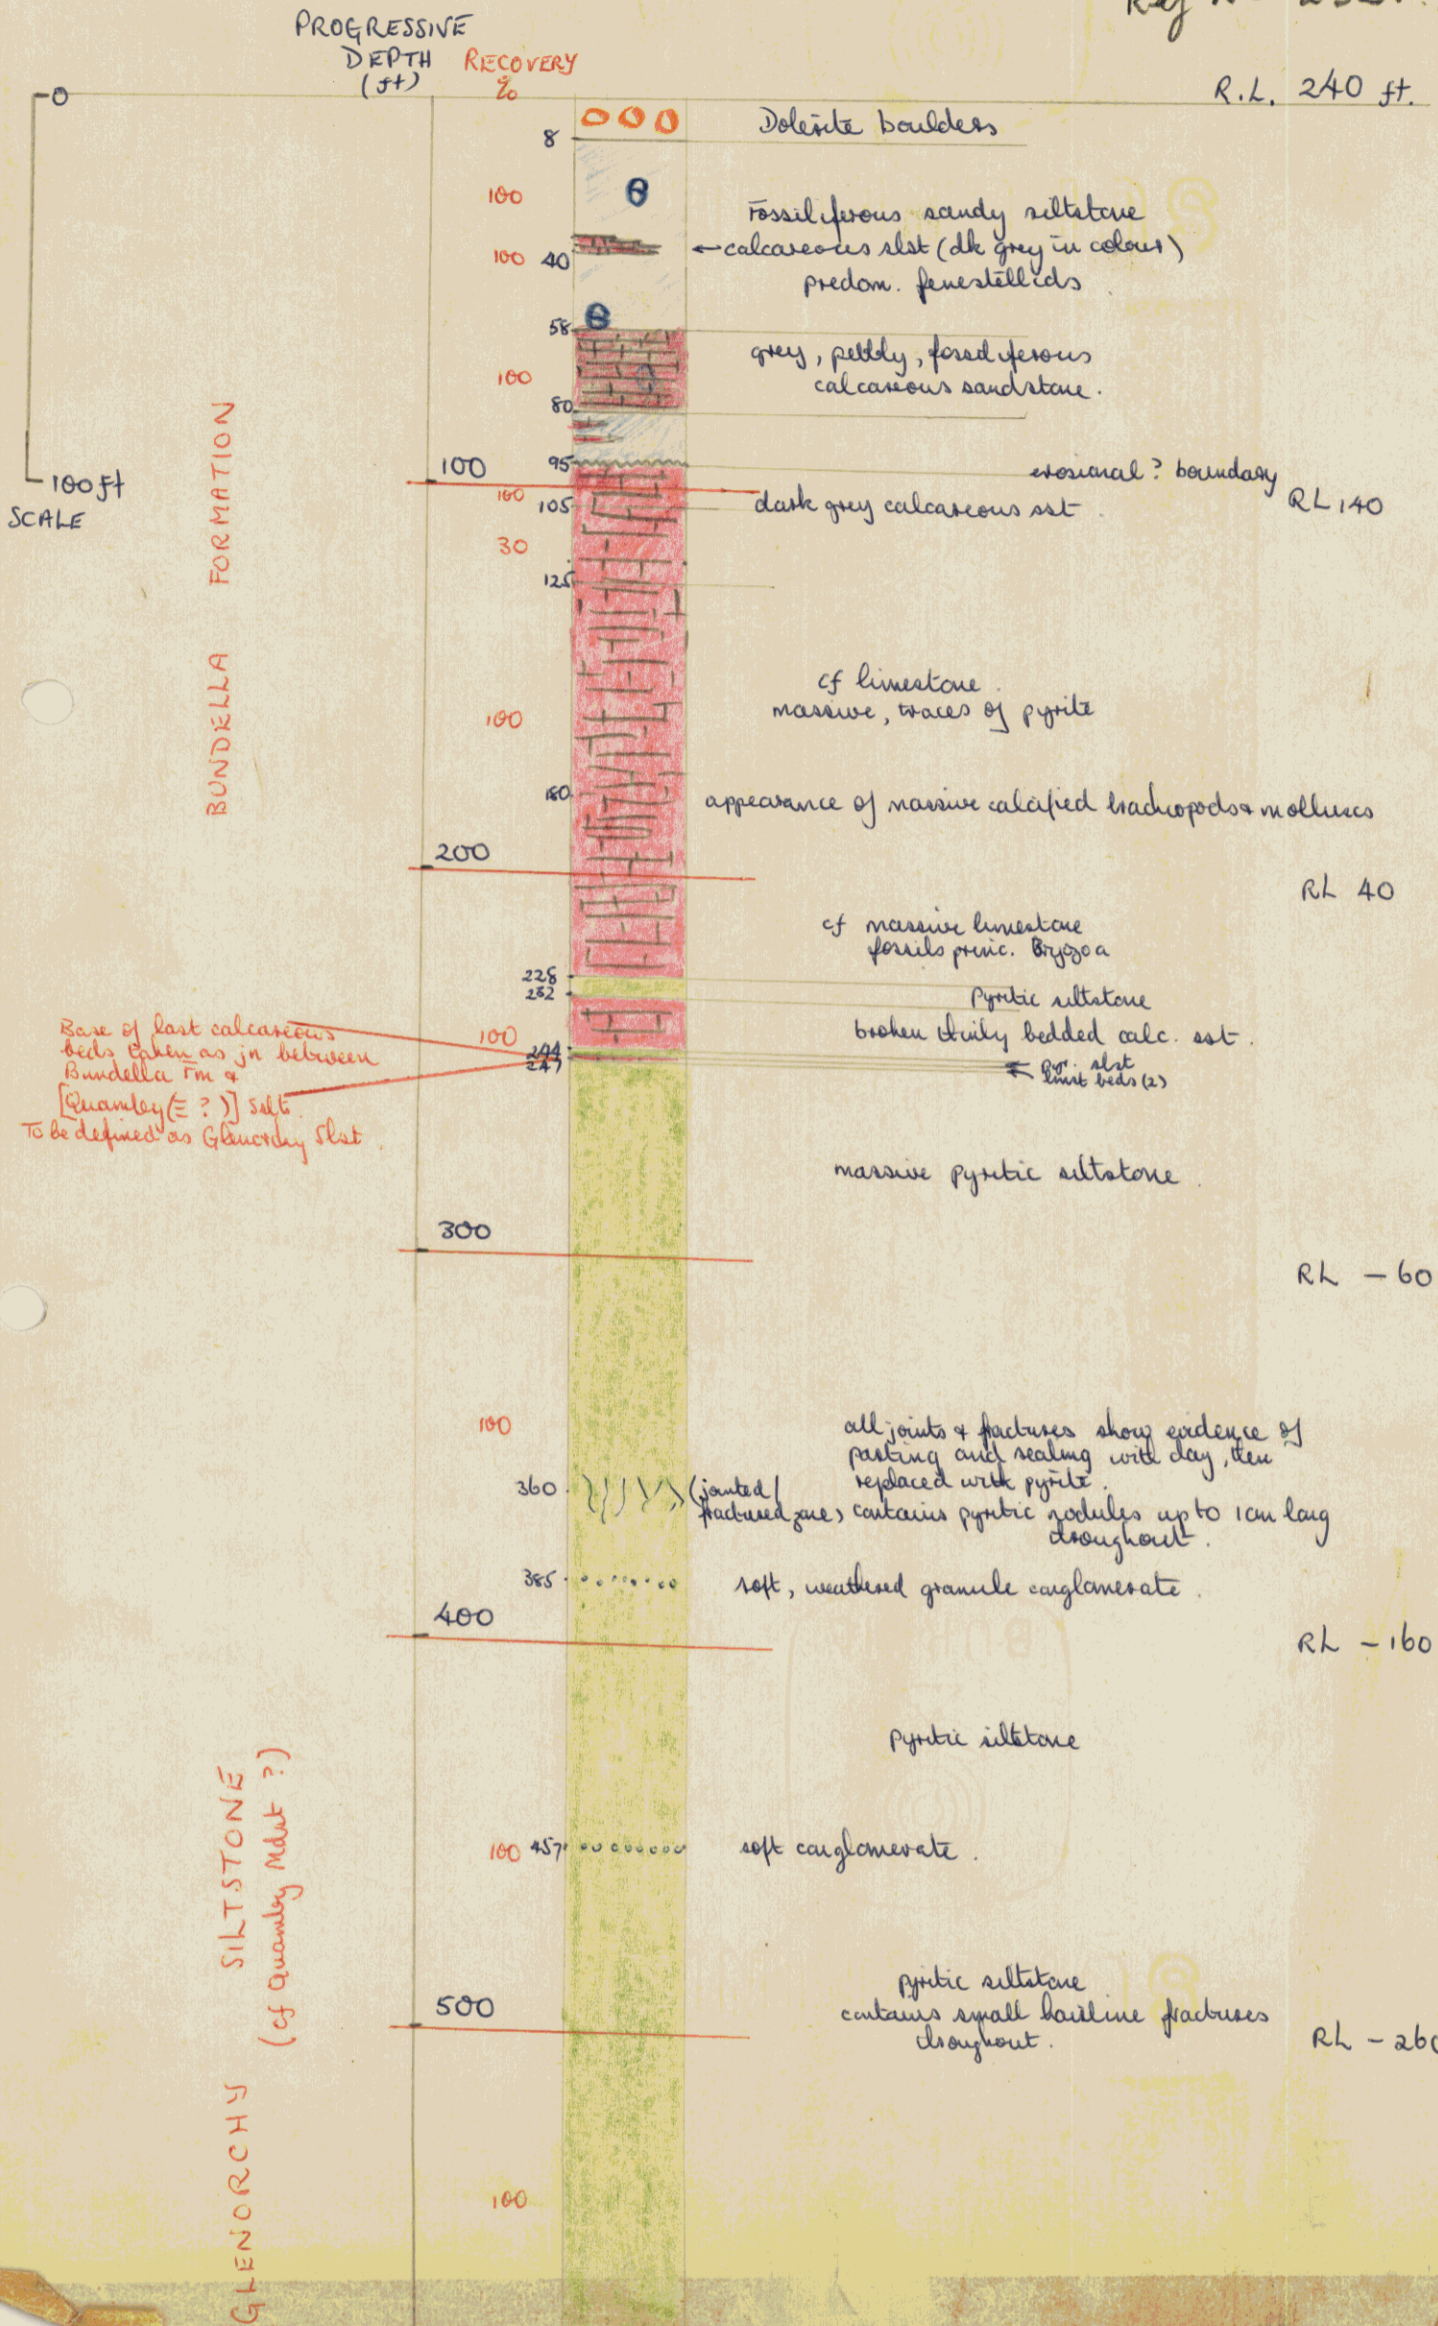 PROGRESSIVE
DEPTH
(ft)
RECOVERY
%
R.L. 240 ft.
0
Dolerite boulders
8
100
Fossiliferous sandy siltstone
←calcareous slst (dk grey in colour)
100
40
predom. fenestellids
58
grey, pebbly, fossiliferous
calcareous sandstone.
100
80
BUNDELLA FORMATION
100
95
erosional? boundary
100 ft
SCALE
100
105
dark grey calcareous sst
RL 140
30
125
cf limestone
massive, traces of pyrite
100
180
appearance of massive calcified brachiopods & molluscs
200
RL 40
cf massive limestone
fossils princ. Bryozoa
228
232
Pyritic siltstone
broken thinly bedded calc. sst.
100
244
247
pyr. slst
lmst beds (2)
Base of last calcareous
beds taken as jn between
Bundella Fm &
[Quamley (≡ ?)] Sslt.
To be defined as Glenorchy Slst.
massive pyritic siltstone
300
RL - 60
100
all joints & fractures show evidence of
parting and sealing with clay, then
replaced with pyrite.
360
(jointed/
fractured zone)
contains pyritic nodules up to 1cm long
throughout.
385
soft, weathered granule conglomerate.
400
RL - 160
pyritic siltstone
100
457
soft conglomerate.
GLENORCHY SILTSTONE
(cf Quamby Mdst ?)
pyritic siltstone
contains small hairline fractures
throughout.
500
RL - 260
100